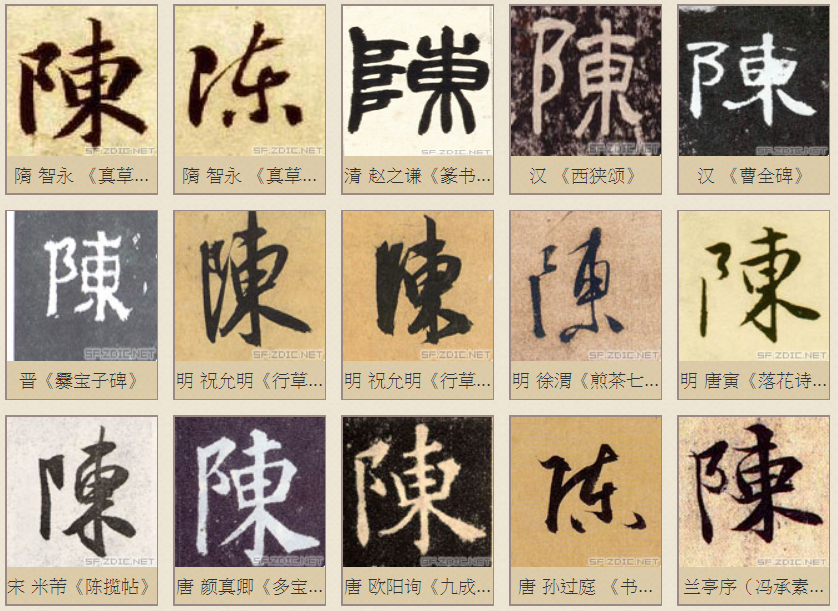 陳
陳
陳
陳
陳
SF.ZDIC.NET
SF.ZDIC.NET
SF.ZDIC.NET
SF.ZDIC.NET
SF.ZDIC.NET
隋 智永 《真草...
隋 智永 《真草...
清 赵之谦《篆书...
汉 《西狭颂》
汉 《曹全碑》
陳
陳
陳
陳
陳
SF.ZDIC.NET
SF.ZDIC.NET
SF.ZDIC.NET
SF.ZDIC.NET
SF.ZDIC.NET
晋《爨宝子碑》
明 祝允明《行草...
明 祝允明《行草...
明 徐渭《煎茶七...
明 唐寅《落花诗...
陳
陳
陳
陳
陳
SF.ZDIC.NET
SF.ZDIC.NET
SF.ZDIC.NET
SF.ZDIC.NET
SF.ZDIC.NET
宋 米芾《陈揽帖》
唐 颜真卿《多宝...
唐 欧阳询《九成...
唐 孙过庭 《书...
兰亭序（冯承素...